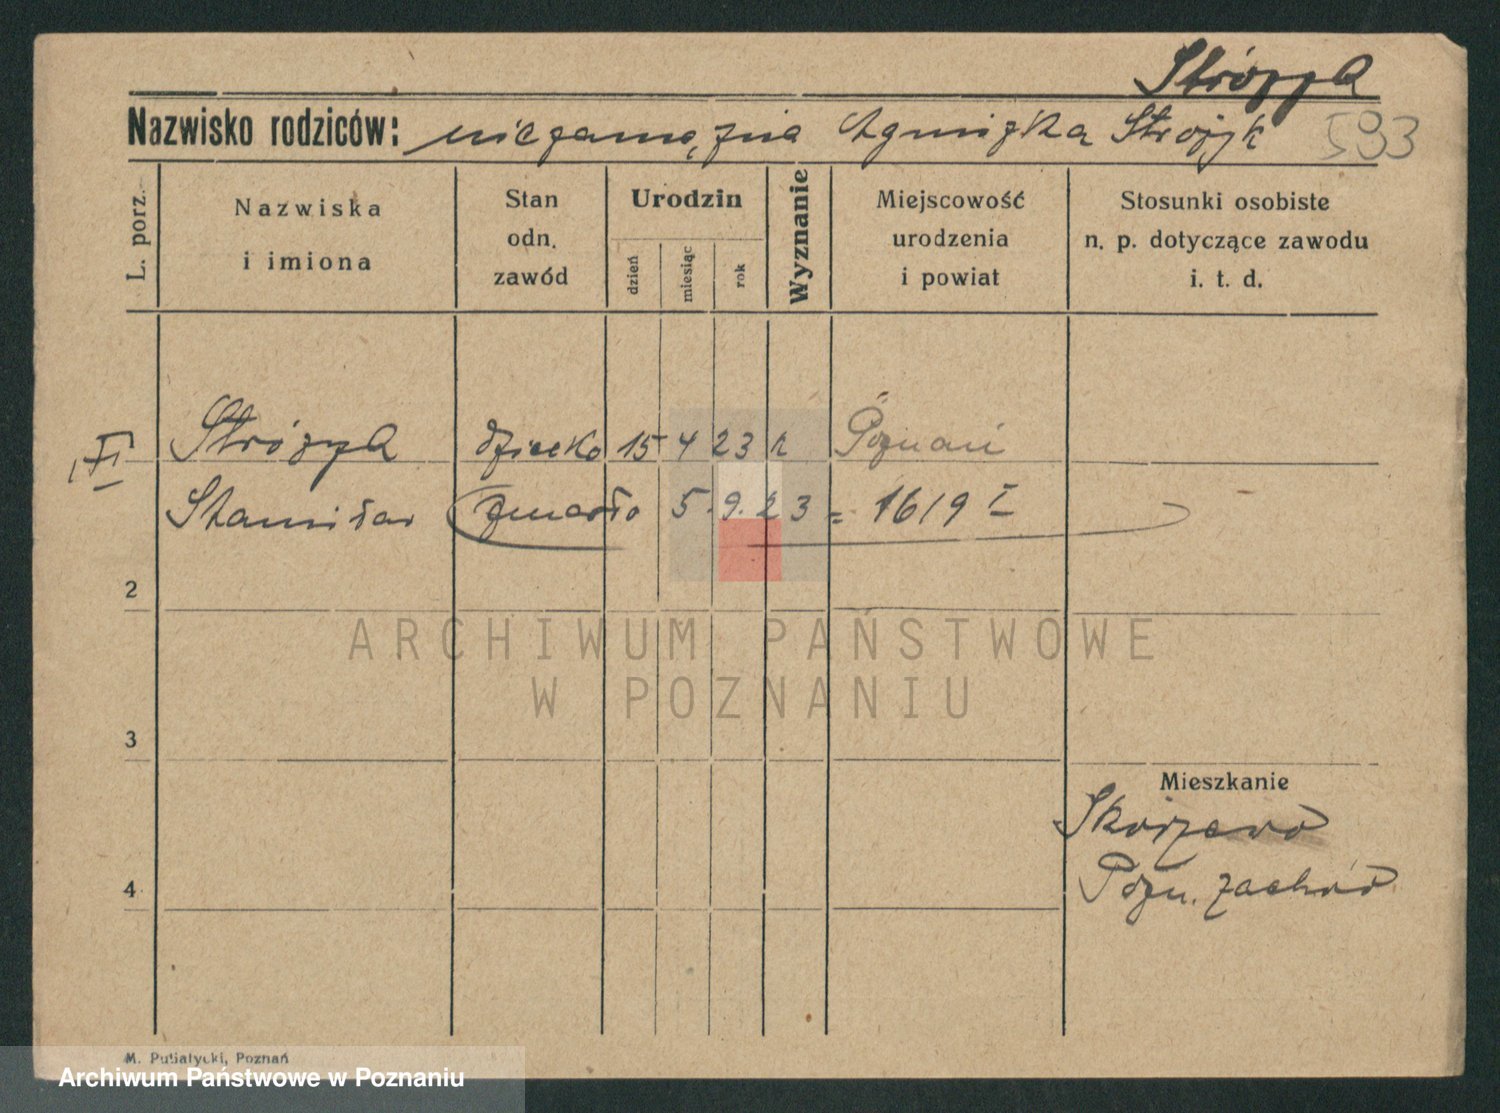 Stróżyk
Nazwisko rodziców: niezamężna Agnieszka Stróżyk 593
L. porz.
Nazwiska
i imiona
Stan
odn.
zawód
Urodzin
dzień
miesiąc
rok
Wyznanie
Miejscowość
urodzenia
i powiat
Stosunki osobiste
n. p. dotyczące zawodu
i. t. d.
Stróżyk dziecko 15 4 23 k Poznań
Stanisław zmarło 5. 9. 23 = 1619 I
2
3
Mieszkanie
Skórzewo
Pozn. zachód
4
ARCHIWUM PAŃSTWOWE
W POZNANIU
M. Putiatycki, Poznań
Archiwum Państwowe w Poznaniu